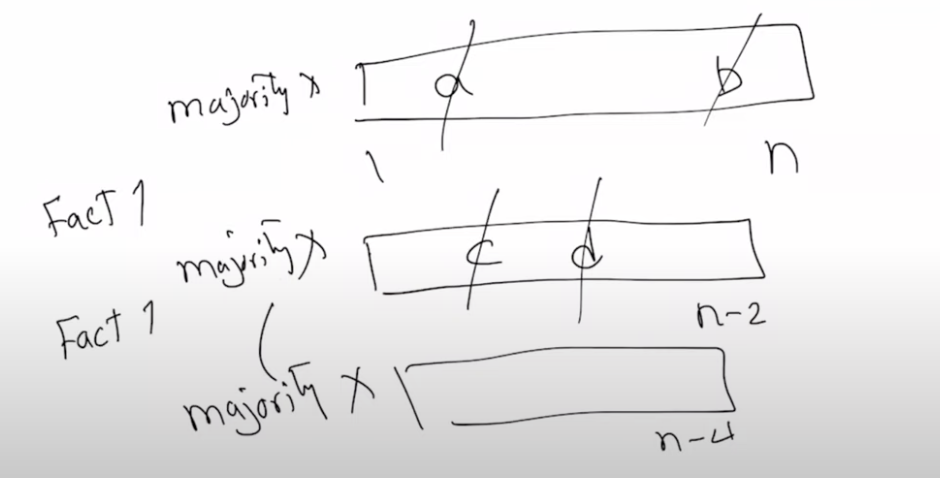 majority x a b
1 n
Fact 1
majority x c d
n-2
Fact 1
majority x
n-4